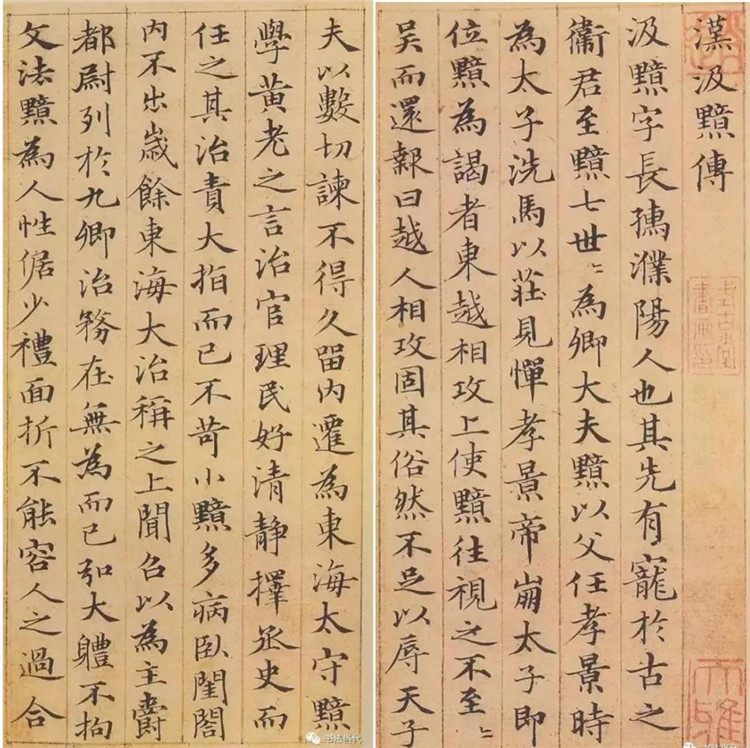 漢汲黯傳
汲黯字長孺濮陽人也其先有寵於古之
衞君至黯七世〻為卿大夫黯以父任孝景時
為太子洗馬以莊見憚孝景帝崩太子即
位黯為謁者東越相攻上使黯往視之不至〻
吳而還報曰越人相攻固其俗然不足以辱天子
夫以數切諫不得久留内遷為東海太守黯
學黃老之言治官理民好清静擇丞史而
任之其治責大指而已不苛小黯多病臥閨閤
内不出歲餘東海大治稱之上聞召以為主爵
都尉列於九卿治務在無為而已弘大體不拘
文法黯為人性倨少禮面折不能容人之過合
书法当代